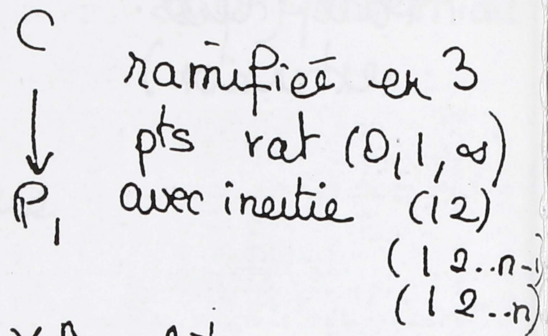 C
↓
P₁
ramifiée en 3
pts rat (0,1,∞)
avec inertie (12)
(12..n-1
(12..n)